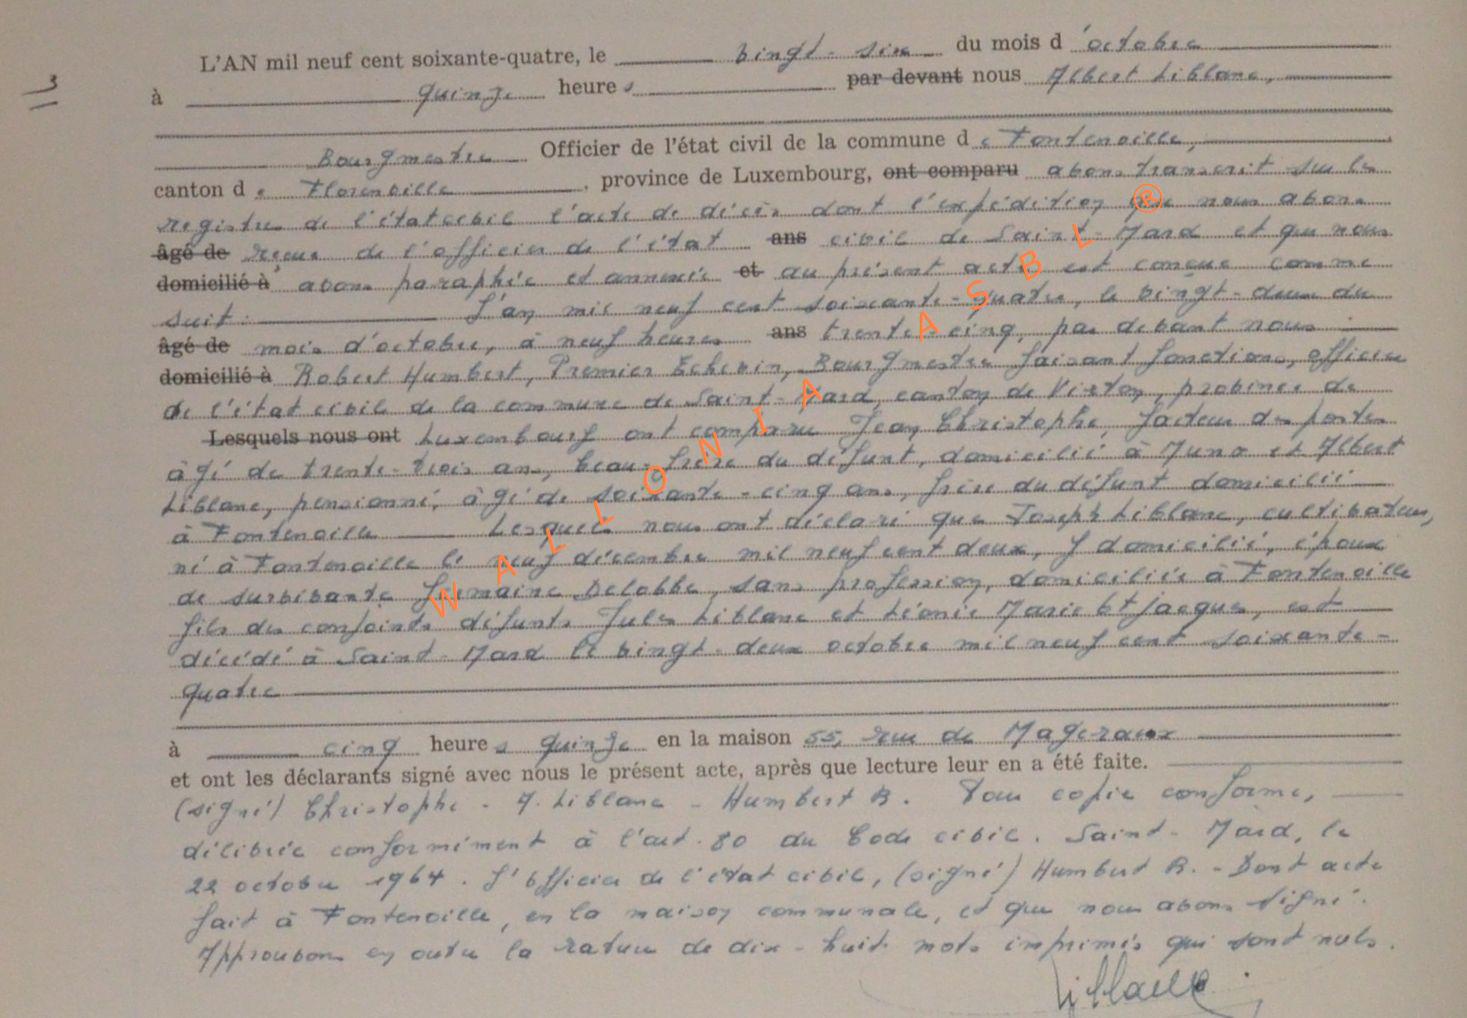 L'AN mil neuf cent soixante-quatre, le vingt-six du mois d'octobre
3
à quinze heures par devant nous Albert Liblanc,
Bourgmestre Officier de l'état civil de la commune de Fontenoille,
canton de Florenville, province de Luxembourg, ont comparu avons transcrit sur les
registres de l'état civil l'acte de décès dont l'expédition que nous avons
âgé de reçue de l'officier de l'état ans civil de Saint-Mard et que nous
domicilié à avons paraphée et annexée et au présent acte est conçue comme
suit: L'an mil neuf cent soixante-quatre, le vingt-deux du
âgé de mois d'octobre, à neuf heures ans trente-cinq, par devant nous
domicilié à Robert Humbert, Premier Echevin, Bourgmestre faisant fonctions, officier
de l'état civil de la commune de Saint-Mard, canton de Virton, province de
Lesquels nous ont Luxembourg ont comparu Jean Christophe, facteur des postes
âgé de trente-trois ans, beau-frère du défunt, domicilié à Muno et Albert
Liblanc, pensionné, âgé de soixante-cinq ans, frère du défunt domicilié
à Fontenoille Lesquels nous ont déclaré que Joseph Liblanc, cultivateur,
né à Fontenoille le neuf décembre mil neuf cent deux, y domicilié, époux
de survivante Germaine Delobbe, sans profession, domiciliée à Fontenoille
fils des conjoints défunts Jules Liblanc et Léonie Marie Stjacques, est
décédé à Saint-Mard le vingt-deux octobre mil neuf cent soixante-
quatre
à cinq heures quinze en la maison 55, rue de Mageroux
et ont les déclarants signé avec nous le présent acte, après que lecture leur en a été faite.
(signé) Christophe - A. Liblanc - Humbert R. Pour copie conforme,
délivrée conformément à l'art. 80 du Code civil. Saint-Mard, le
22 octobre 1964. L'officier de l'état civil, (signé) Humbert R. - Dont acte
fait à Fontenoille, en la maison communale, et que nous avons signé.
Approuvons en outre la rature de dix-huit mots imprimés qui sont nuls.
Liblanc
WALLONIA ASBL ®